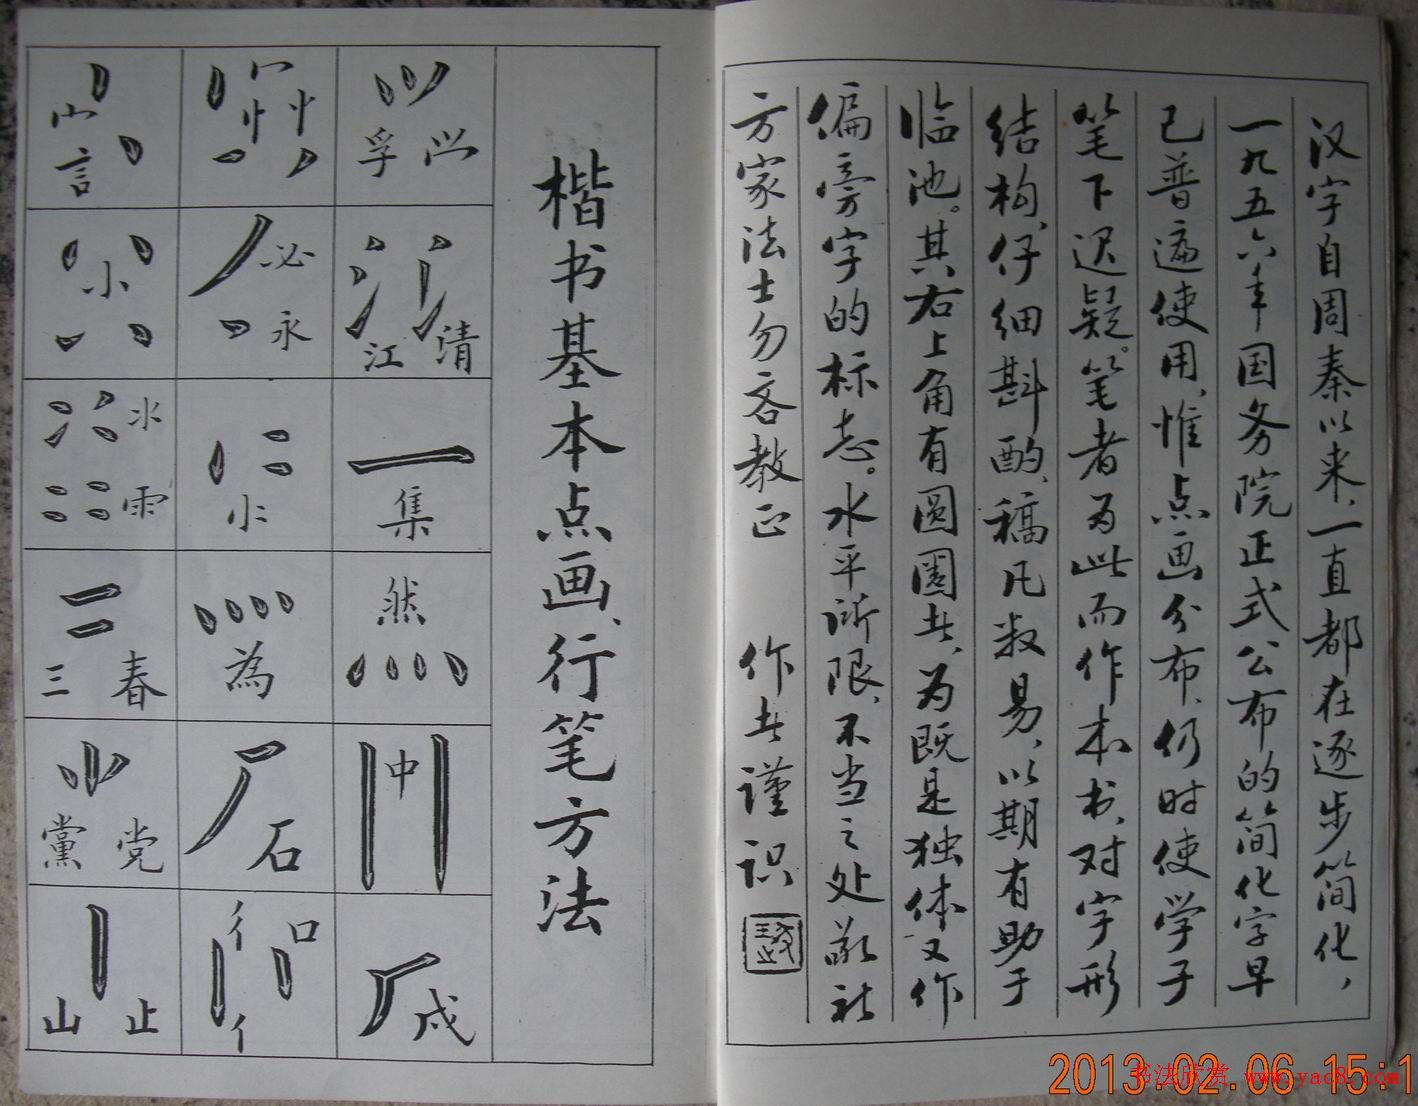 汉字自周秦以来,一直都在逐步简化,
一九五六年国务院正式公布的简化字早
已普遍使用,惟点画分布,仍时使学子
笔下迟疑。笔者为此而作本书,对字形
结构,仔细斟酌,稿凡数易,以期有助于
临池。其右上角有圆圈者,为既是独体又作
偏旁字的标志。水平所限,不当之处敬祈
方家法士勿吝教正 作者谨识
楷书基本点画、行笔方法
孚 𭕄
江 清
集
然
中
戍
必
永
小
為
石
彳 口
亻
宀
言
小
水
雨
三 春
黨 党
山 止
2013.02.06 15:1
书法欣赏 www.yac8.com